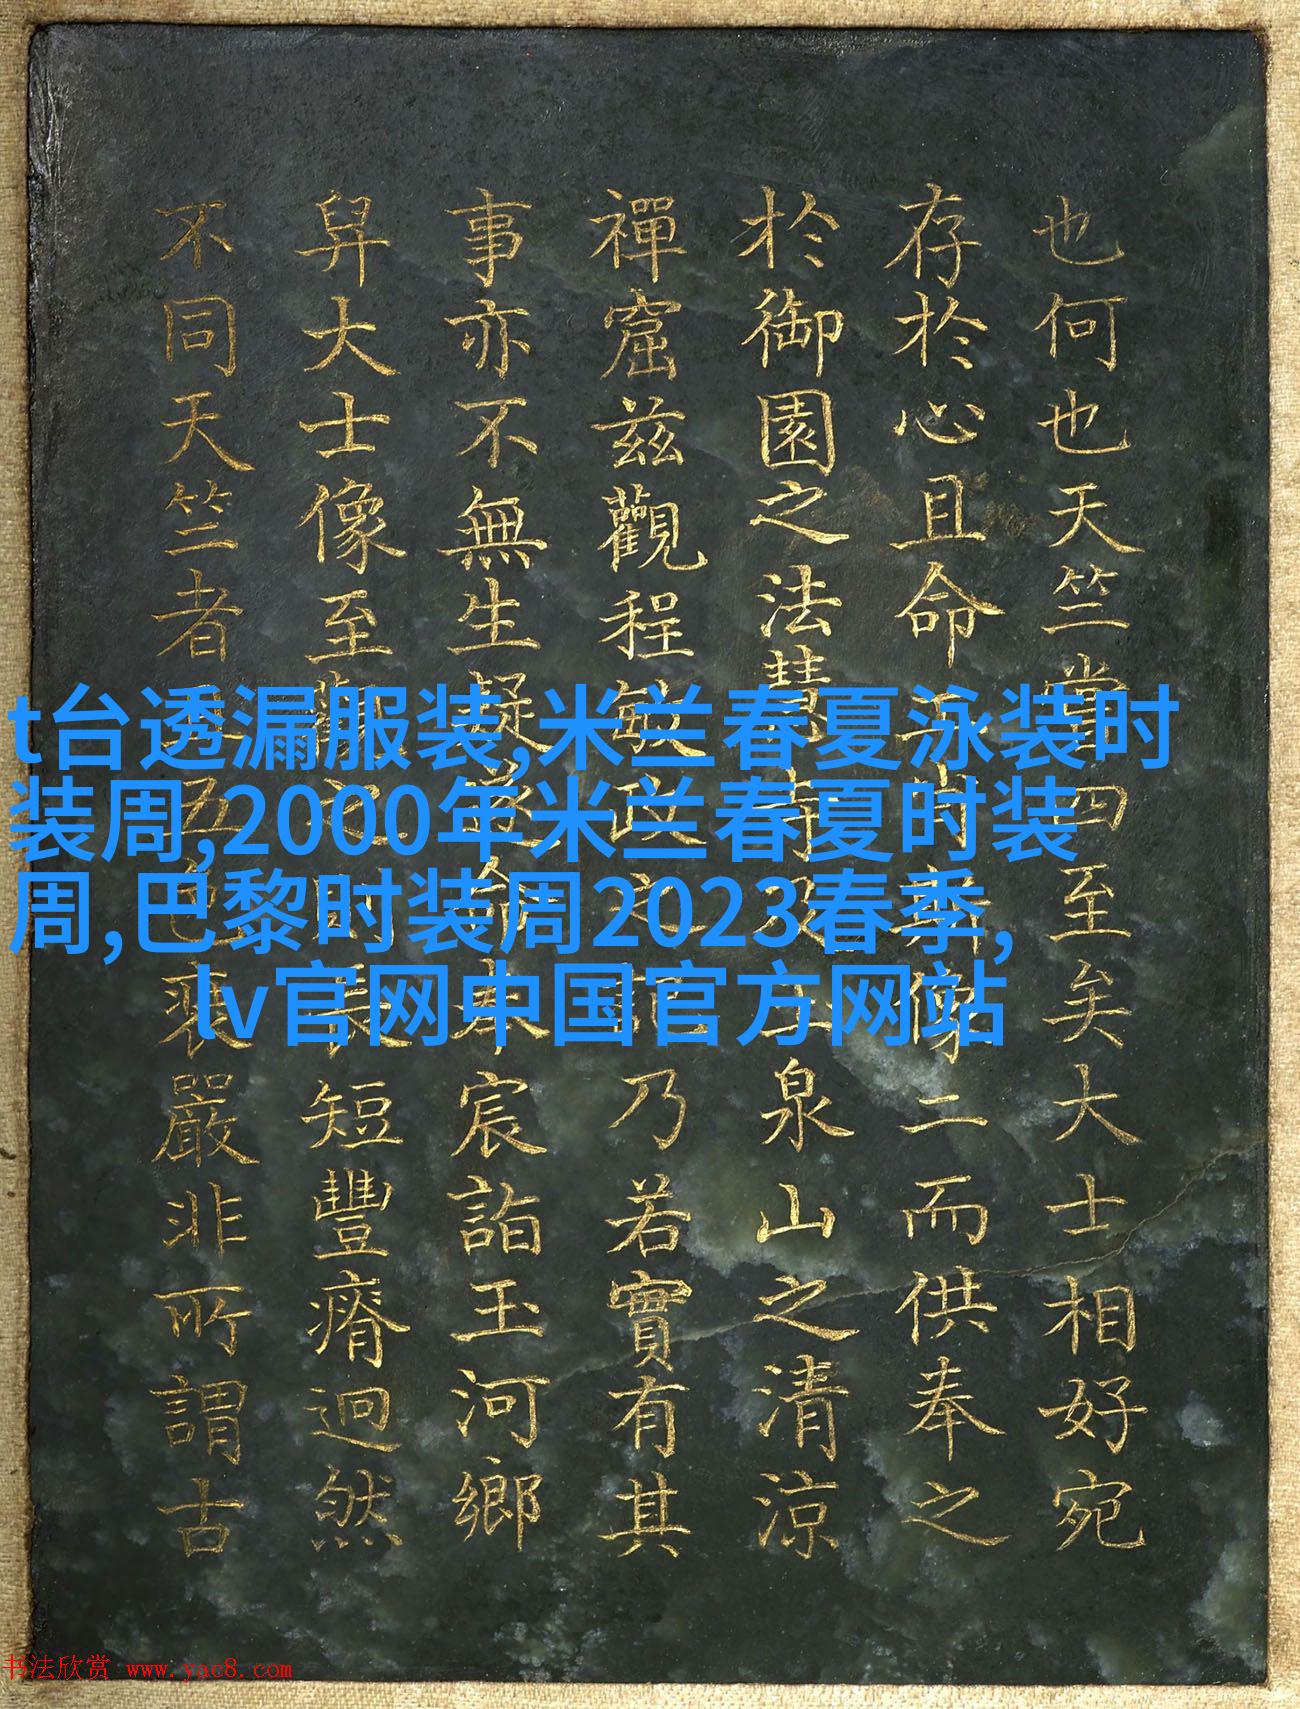 也何也天竺四至矣大士相好宛
存於心且命像二而供奉之
於御園之法慧寺及玉泉山之清涼
禪窟茲觀程敏政之記乃若實有其
事亦不無生疑並命朱宸詣玉河鄉
舁大士像至觀之則長短豐瘠迥然
不同天竺者五色裝嚴非所謂古
t台透漏服装,米兰春夏泳装时
装周,2000年米兰春夏时装
周,巴黎时装周2023春季,
lv官网中国官方网站
书法欣赏 www.yac8.com